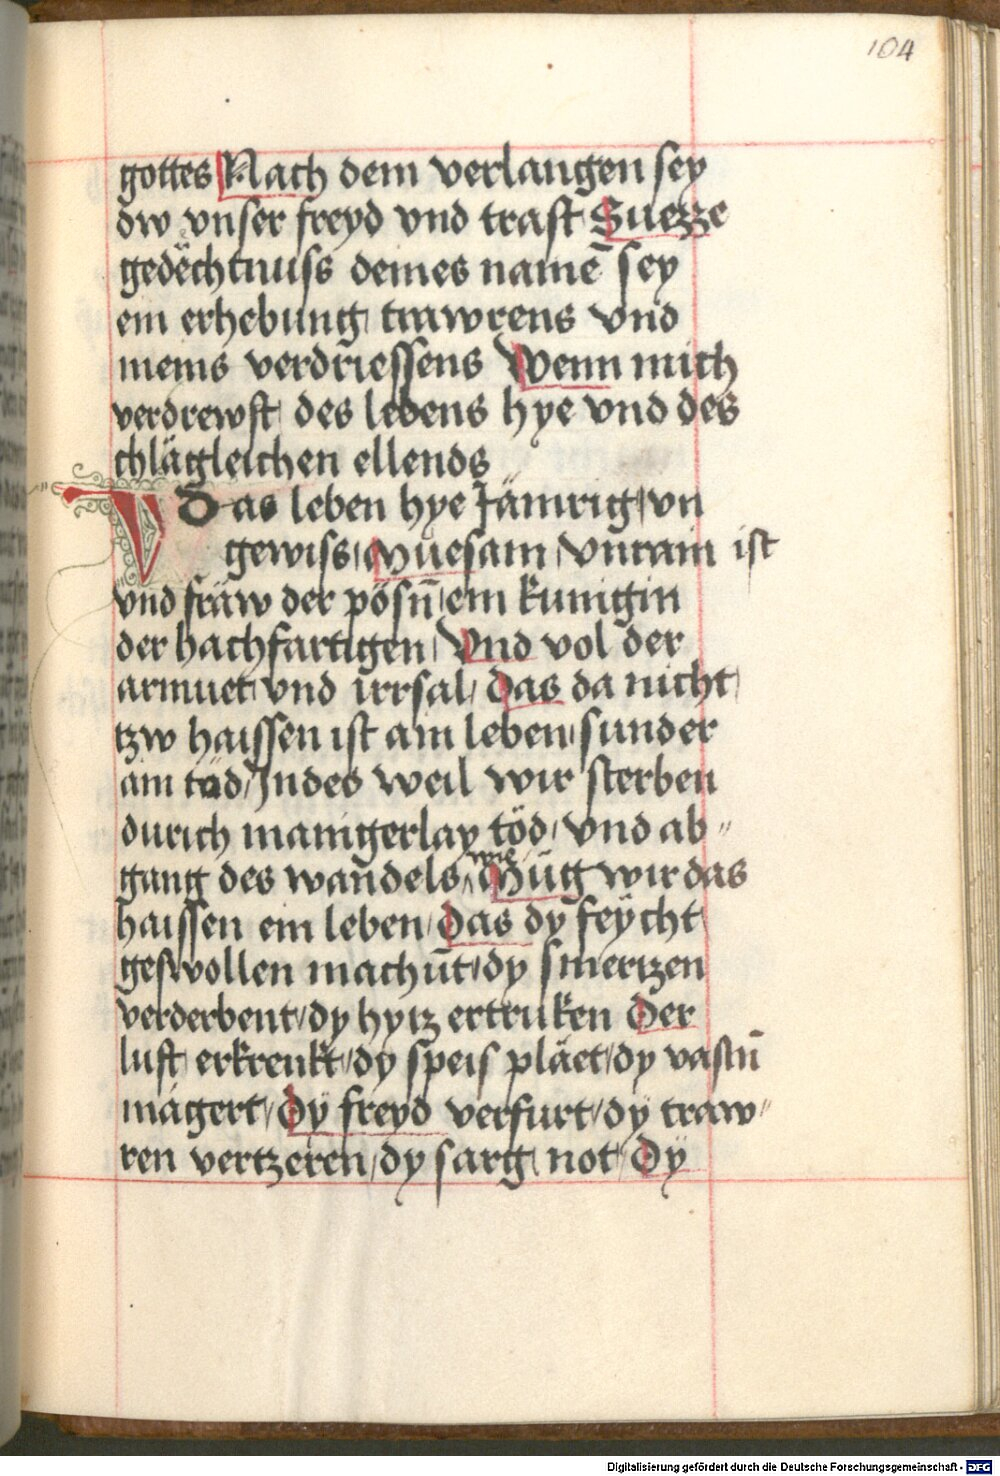 104
gottes Nach dem verlangen sey
dw vnser freyd vnd trast Suezze
gedëchtnuss deines namē sey
ein erhebung trawrens vnd
meins verdriessens Wenn mich
verdrewst des lebens hye vnd des
chlägleichen ellends
V Das leben hye Jämrig / vn
gewiss / Muesam / Vnrain ist
vnd fräw der pösn̄ / ein kunigin
der hachfartigen / Vnd vol der
armuet / vnd irrsal / das da nicht
tzw haissen ist ain leben / sunder
ain töd / Indes weil wir sterben
durich manigerlay töd / vnd ab〃
gang des wandels / wie Müg wir das
haissen ein leben / das dy feÿcht
geswollen machūt / dy smertzen
verderbent / dy hytz ertruken Der
luft erkrenkt / dy speis pläet / dy vastn̄
mägert / Dÿ freyd verfurt / dÿ traw〃
ren vertzeren / dy sarg not / Dÿ
Digitalisierung gefördert durch die Deutsche Forschungsgemeinschaft - DFG